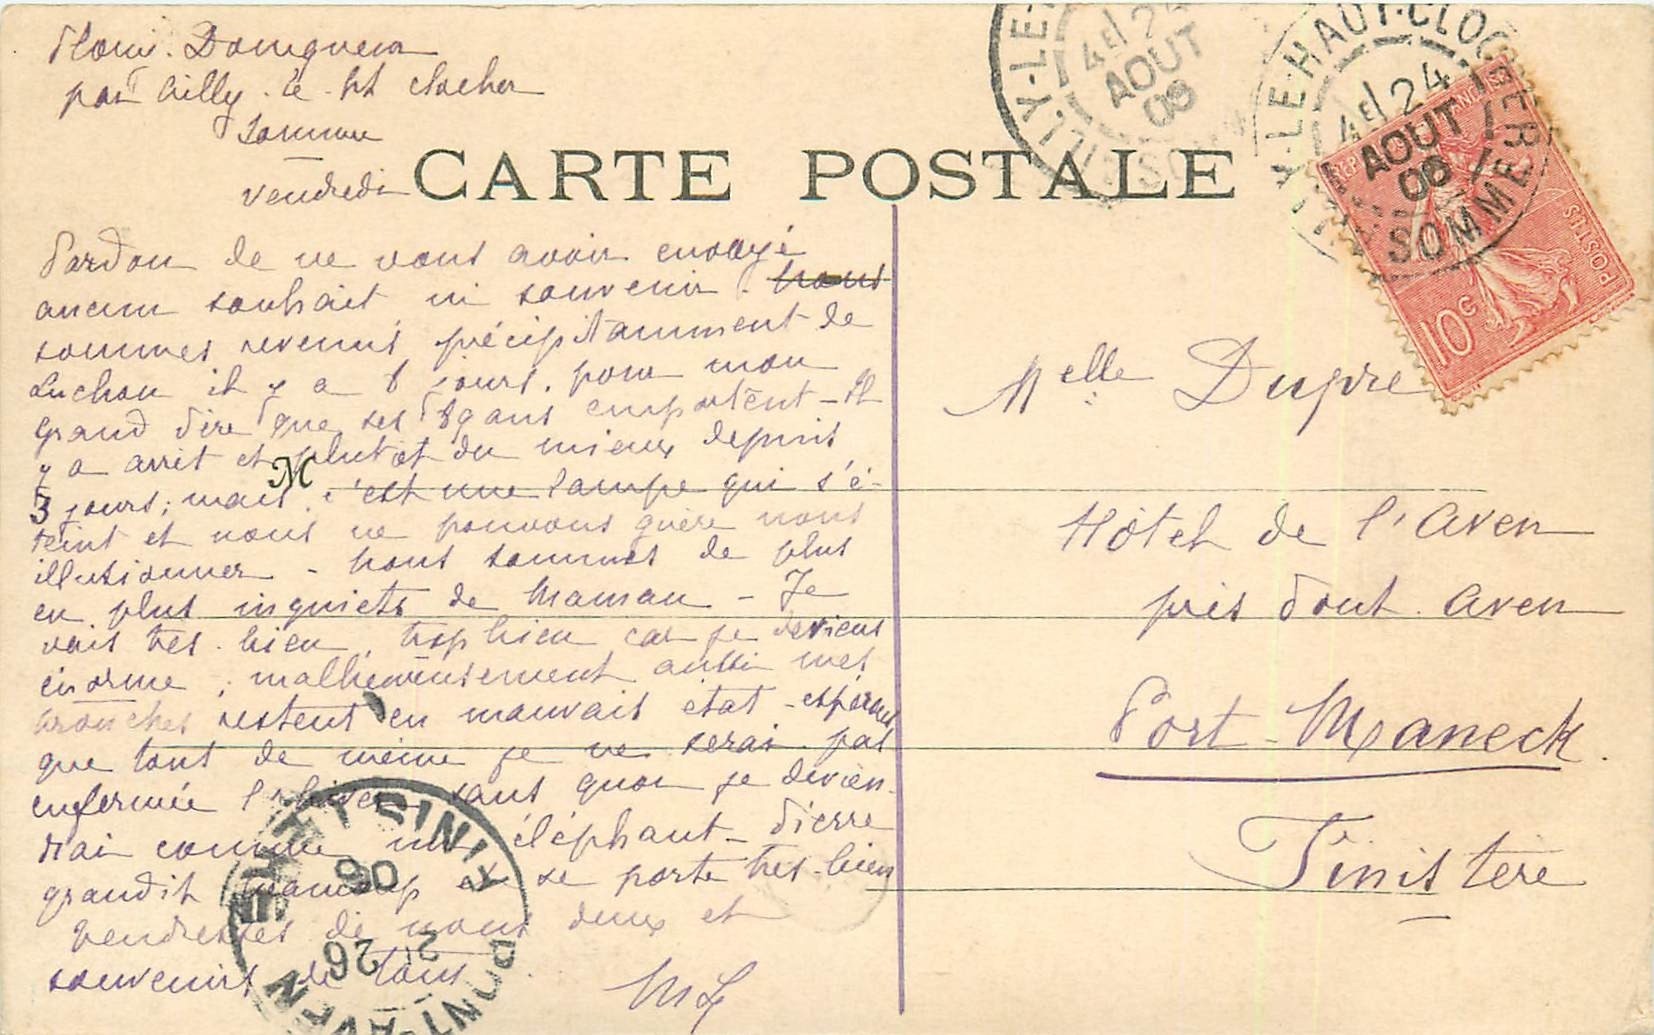 par Ailly-le-Ht Clocher
Somme
Vendredi
CARTE POSTALE
Pardon de ne vous avoir envoyé
aucun souhait ni souvenir. Nous
sommes revenus précipitamment de
Luchon il y a 8 jours. pour mon
grand père que ses 89 ans emportent - Il
y a arrêt et plutôt du mieux depuis
3 jours; mais c'est une lampe qui s'é-
teint et nous ne pouvons guère nous
illusionner - nous sommes de plus
en plus inquiets de Maman - Je
vais très bien, trop bien car je deviens
énorme; malheureusement aussi mes
bronches restent en mauvais état - espérons
que tout de même je ne serai pas
enfermée l'hiver sans quoi je devien-
drai comme un éléphant - Pierre
grandit beaucoup et se porte très bien
tendresses de nous deux et
souvenirs de tous
M
Melle Dupré
Hôtel de l'Aven
près Pont-Aven
Port-Maneck.
Finistère
AILLY-LE-HAUT-CLOCHER
4E/24
AOUT
06
SOMME
AILLY-LE-
4E/24
AOUT
06
SOMME
POSTES
10c
PONT-AVEN
26
06
FINISTÈRE
M